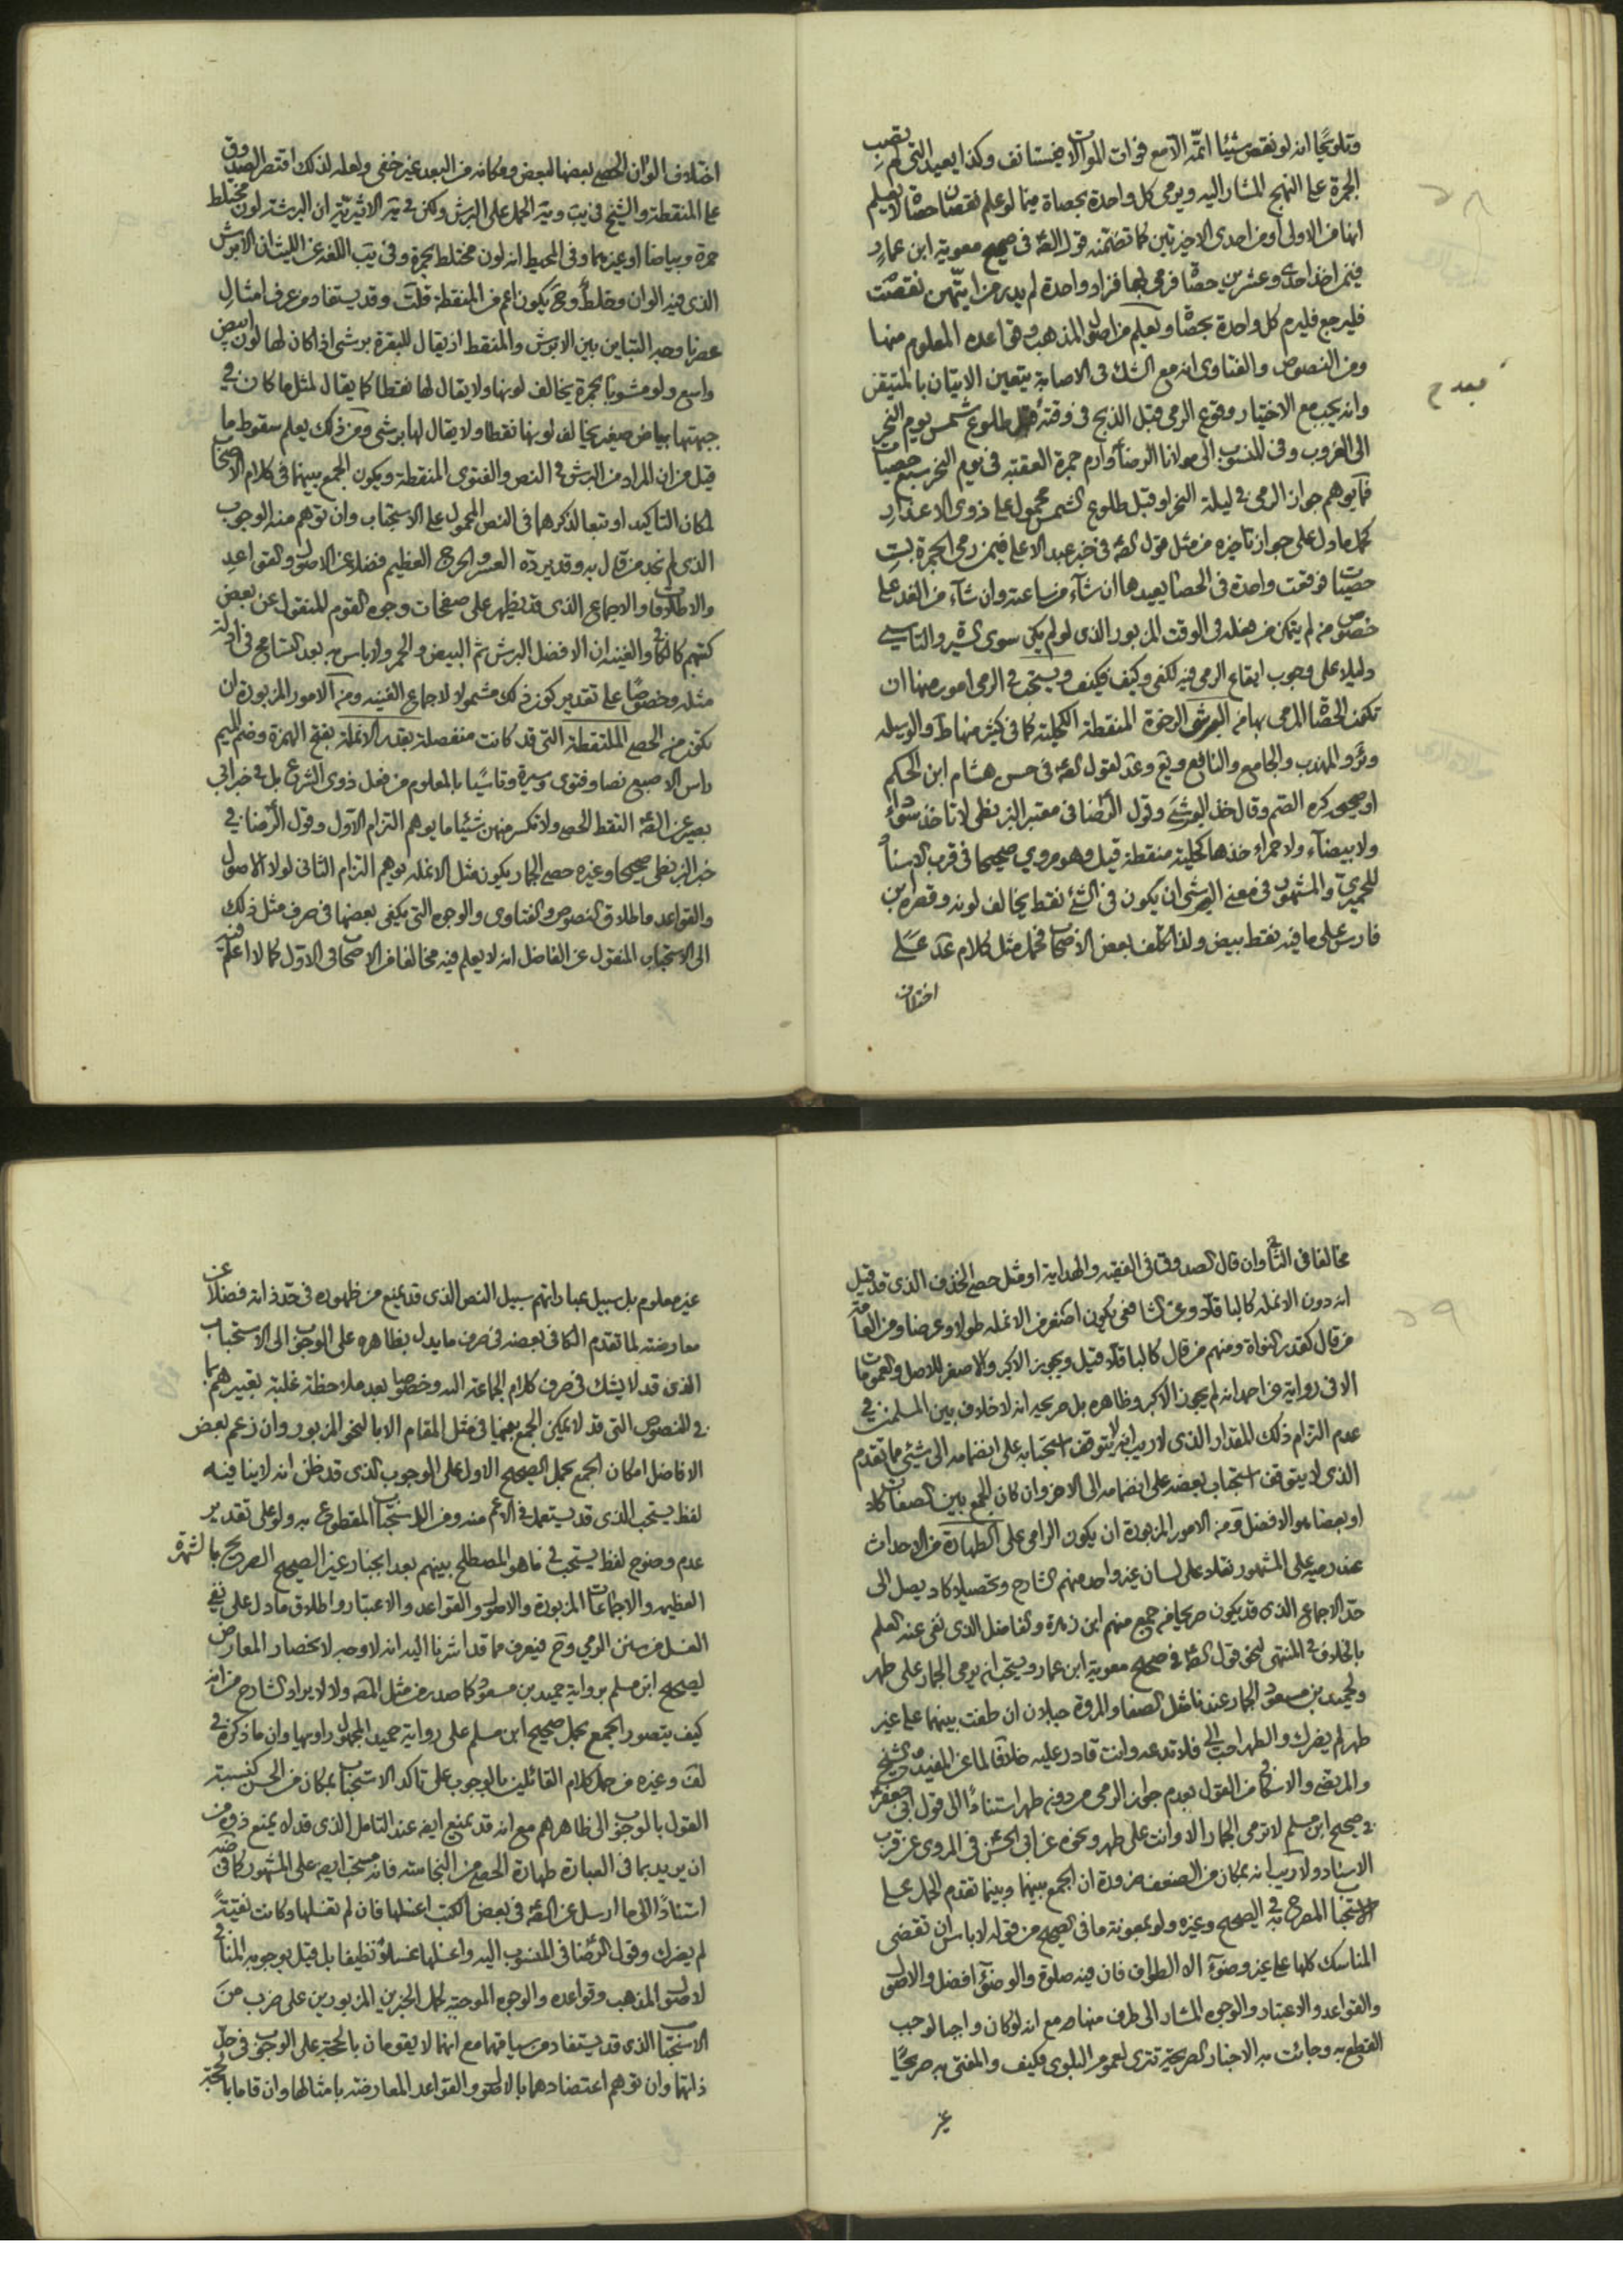 وتلويحا انه لو نقص شيئا اتمه الا مع فوات الموالات فيستانف وكذا يعيد التي لم تصب
الجمرة على النهج المشار اليه ويرمى كل واحدة بحصاة فيما لو علم نقصان حصاة لا يعلم
انها من الاولى او من احدى الاخيرتين كما تضمنه قول الصة في صحيح معوية ابن عمار
فيمن اخذ احدى وعشرين حصاة فرمى بها فزاد واحدة لم يدر من ايتهن نقصت
فليرجع فليرم كل واحدة بحصاة ويعلم من اصول المذهب وقواعده المعلوم منها
ومن النصوص والفتاوى انه مع الشك في الاصابة يتعين الاتيان بالمتيقن
وانه يجب مع الاختيار وقوع الرمى قبل الذبح في وقته طلوع شمس يوم النحر
الى الغروب وفى المنسوب الى مولانا الرضا وارم جمرة العقبة في يوم النحر سبع حصيات
فما يوهم جواز الرمى في ليلة النحر او قبل طلوع الشمس محمول على ذوى الاعذار
كما دل على جواز تاخيره من مثل قول الصة في خبر عبد الاعلى فيمن رمى الجمرة بست
حصيات فوقعت واحدة في الحصا يعيدها ان شآء من ساعته وان شآء من الغد على
خصوص من لم يتمكن من هذا في الوقت المزبور الذى لو لم يكن سوى السيرة والتاسي
دليلا على وجوب ايقاع الرمى فيه لكفى وكيف فكيف ويستحب في الرمى امور منها ان
تكون الحصاة المرمى بها من البرش الرخوة المنقطة الكحلية كما في كثير منها ط والوسيله
وئر والمهذب والجامع والنافع ويع وعد لقول الصة في حسن هشام ابن الحكم
او صحيحه كره الصم وقال خذ البرش وقول الرضا في معتبر البزنطى لا تاخذ سوداء
ولا بيضآء ولا حمراء خذها كحلية منقطة قيل وهو مروي صحيحا في قرب الاسناد
للحميري والمشهور في معنى البرش ان يكون في الشئ نقط يخالف لونه وقصره ابن
فارس على ما فيه نقط بيض ولذا تكلف بعض الاصحاب فحمل مثل كلام عد على
اختلاف
فيه ح
اختلاف الوان الحصى بعضها لبعض ومكانه من البعد غير خفى ولعله لذلك اقتصر الصدوق
على المنقطة والشيخ في يب وية الجمل على البرش ولكن في ية الاثيرية ان البرشة لون مختلط
حمرة وبياضا او غيرهما وفى المحيط انه لون مختلط بحمرة وفى تهذيب اللغه عن الليث ان الابرش
الذى فيه الوان وخلط وح يكون اعم من المنقطة قلت وقد يستفاد من عرف امثال
عصرنا وجه التباين بين الابرش والمنقط اذ يقال للبقرة برشى اذا كان لها لون ابيض
واسع ولو مشوبا بحمرة يخالف لونها ولا يقال لها نقطا كما يقال لمثل ما كان في
جبهتها بياض صغير يخالف لونها نقطا ولا يقال لها برشى ومن ذلك يعلم سقوط ما
قيل من ان المراد من البرش في النص والفتوى المنقطة ويكون الجمع بينهما في كلام الاصحاب
لمكان التاكيد او تبعا لذكرهما في النص المحمول على الاستحباب وان توهم منه الوجوب
الذى لم نجد من قال به وقد يرده العسر والحرج العظيم فضلا عن الاصول والقواعد
والاطلاقات والاجماع الذى قد يظهر على صفحات وجوه القوم المنقول عن بعض
كتبهم كالكافى والغنيه ان الافضل البرش ثم البيض والحمر ولا باس به بعد التسامح في ادلة
مثله وخصوصا على تقدير كون ذلك مشمولا لاجماع الغنيه ومن الامور المزبورة ان
تكون من الحصى الملتقطة التى قد كانت منفصلة بقدر الانملة بفتح الهمزة وضم الميم
راس الاصبع نصا وفتوى وسيرة وتاسيا بالمعلوم من فعل ذوى الشرع بل في خبر ابي
بصير عن الصة التقط الحصى ولا تكسر منهن شيئا ما يوهم التزام الاول وقول الرضا في
خبر البزنطى صحيحا وغيره حصى الجمار يكون مثل الانملة يوهم التزام الثانى لولا الاصول
والقواعد واطلاق النصوص والفتاوى والوجوه التى يكفى بعضها في صرف مثل ذلك
الى الاستحباب المنقول عن الفاضل انه لا يعلم فيه مخالفا من الاصحاب في الاول كما لا اعلم فيه
مخالفا في الثاني وان قال الصدوق في الفقيه والهداية او مثل حصى الخذف الذى قد قيل
انه دون الانملة كالباقلا وعن الشافعى يكون اصغر من الانملة طولا وعرضا ومن العامة
من قال كقدر النواة ومنهم من قال كالباقلا قيل ويجوز الاكبر والاصغر للاصل والعمومات
الا في رواية عن احمد انه لم يجوز الاكبر وظاهره بل صريحه انه لا خلاف بين المسلمين في
عدم التزام ذلك المقدار الذى لا ريب انه لا يتوقف استحبابه على انضمامه الى شئ مما تقدم
الذى لا يتوقف استحباب بعضه على انضمامه الى الاخر وان كان الجمع بين الصفات كلا
او بعضا هو الافضل ومن الامور المزبورة ان يكون الرامى على الطهارة من الاحداث
عند رميه على المشهور نقلا على لسان غير واحد منهم الشارح وتحصيلا كاد يصل الى
حد الاجماع الذى قد يكون صريحا من جمع منهم ابن زهرة والفاضل الذى نفى عنه العلم
بالخلاف في المنتهى لنحو قول الصة في صحيح معوية ابن عمار ويستحب ان يرمى الجمار على طهر
ولحميد بن مسعود الجمار عندنا مثل الصفا والمروة حبلان ان طفت بينهما على غير
طهر لم يضرك والطهر احب الى فلا تدعه وانت قادر عليه خلافا لما عن المفيد والشيخ
والمرتضى والاسكافى من القول بعدم جواز الرمى من دونه طهر استنادا الى قول ابى جعفر
في صحيح ابن مسلم لا ترمى الجمار الا وانت على طهر ونحوه عن ابى الحسن في المروى عن قرب
الاسناد ولا ريب انه بمكان من الضعف ضرورة ان الجمع بينهما وبينما تقدم الحمل على
الاستحباب المصرح به في الصحيح وغيره ولو بمعونة ما في الصحيح من قوله لا باس ان تقضى
المناسك كلها على غير وضوء الا الطواف فان فيه صلوة والوضوء افضل والاصول
والقواعد والاعتبار والوجوه المشار الى طرف منها مع انه لو كان واجبا لوجب
القطع به وجائت به الاخبار الصريحة تترى لعموم البلوى فكيف والمفتى به صريحا
غير
غير معلوم بل سبيل عباراتهم سبيل النص الذى قد يمنع من ظهوره في حد ذاته فضلا عن
معارضته لما تقدم الكافى بعضه في صرف ما يدل بظاهره على الوجوب الى الاستحباب
الذى قد لا يشك في صرف كلام الجماعة اليه وخصوصا بعد ملاحظة غلبة تعبيرهم بما
في النصوص التى قد لا يمكن الجمع بينها في مثل المقام الا بالنحو المزبور وان زعم بعض
الافاضل امكان الجمع بحمل الصحيح الاول على الوجوب الذى قد ظن انه لا ينافيه
لفظ يستحب الذى قد يستعمل في الاعم منه ومن الاستحباب المقطوع به ولو على تقدير
عدم وضوح لفظ يستحب في ما هو المصطلح بينهم بعد انجبار غير الصحيح الصريح بالشهرة
العظيمه والاجماعات المزبورة والاصول والقواعد والاعتبار واطلاق ما دل على نفى
الغسل من سنن الرمي وح فيعرف مما قد اشرنا اليه انه لا وجه لانحصار المعارض
لصحيح ابن مسلم برواية حميد بن مسعود كما صدر من مثل المص ولا لايراد الشارح من انه
كيف يتصور الجمع بحمل صحيح ابن مسلم على رواية حميد المجهول راويها وان ما ذكره في
لف وغيره من حمل كلام القائلين بالوجوب على تاكد الاستحباب بمكان من الحسن كنسبة
القول بالوجوب الى ظاهرهم مع انه قد يمنع ايض عند التامل الذى قد لا يمنع ذوه من
ان يريد بما في العبارة طهارة الحصى من النجاسة فانه مستحب ايض على المشهور كما في ضه
استنادا الى ما ارسل عن الصة في بعض الكتب اغسلها فان لم تغسلها وكانت نقية
لم يضرك وقول الرضا في المنسوب اليه واغسلها غسلا نظيفا بل قيل بوجوبه المنافى
لاصول المذهب وقواعده والوجوه الموجبة لحمل الخبرين المزبورين على ضرب من
الاستحباب الذى قد يستفاد من سياقهما مع انهما لا يقومان بالحجة على الوجوب في حد
ذاتهما وان توهم اعتضادهما بالاصول والقواعد المعارضة بامثالها وان قاما بالحجة